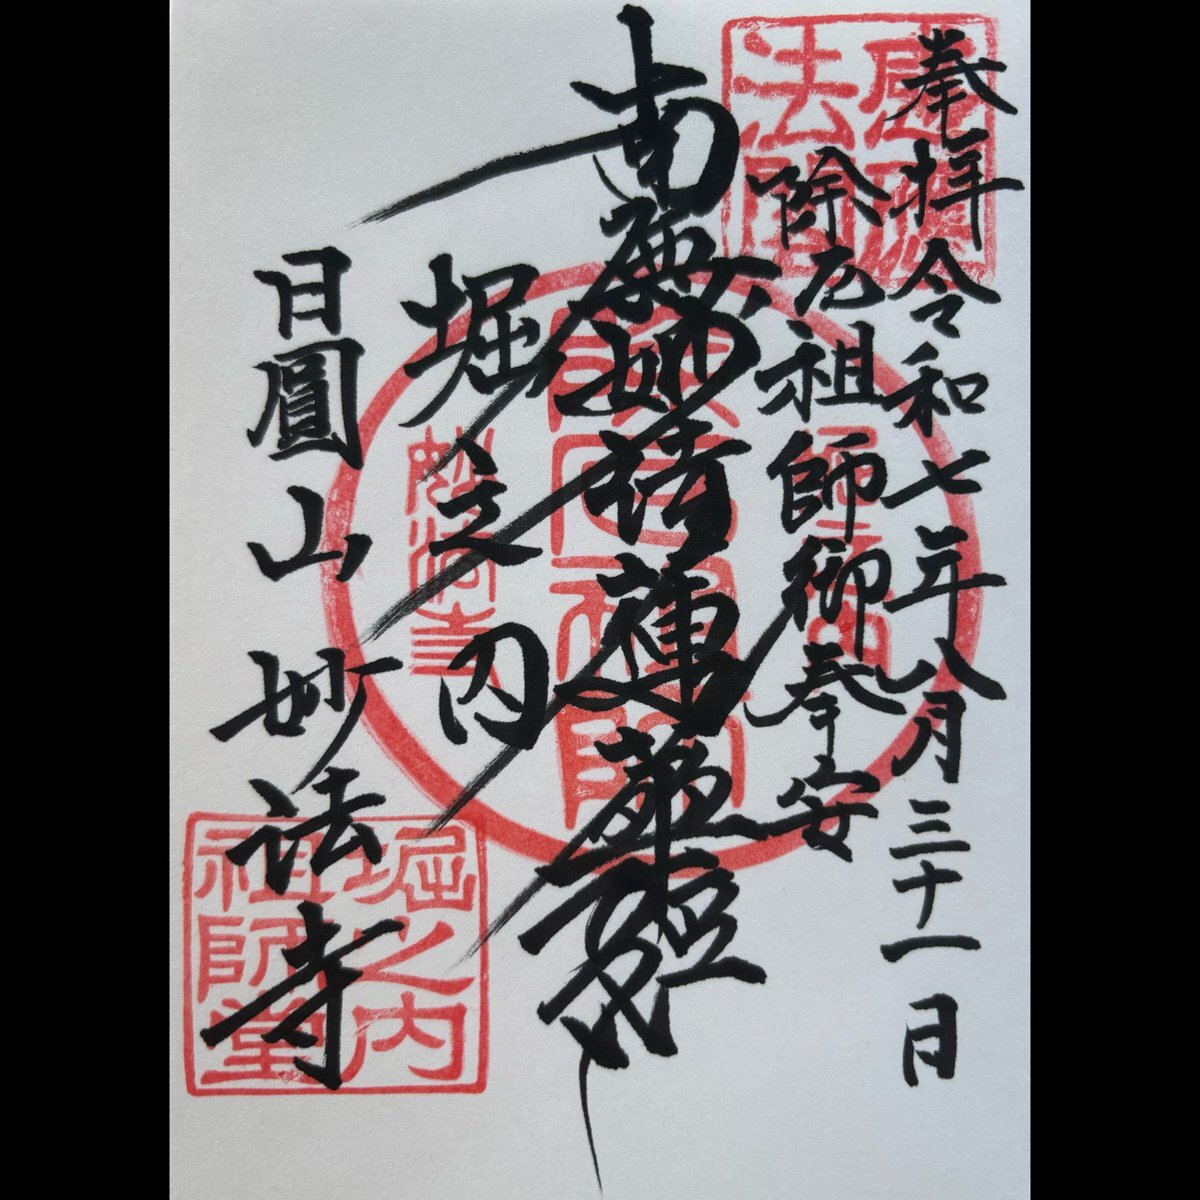 奉拝 令和七年八月三十一日
除厄祖師御奉安
南無妙法蓮華経
堀之内
日圓山 妙法寺
除厄祖師
妙法寺
堀之内
祖師堂